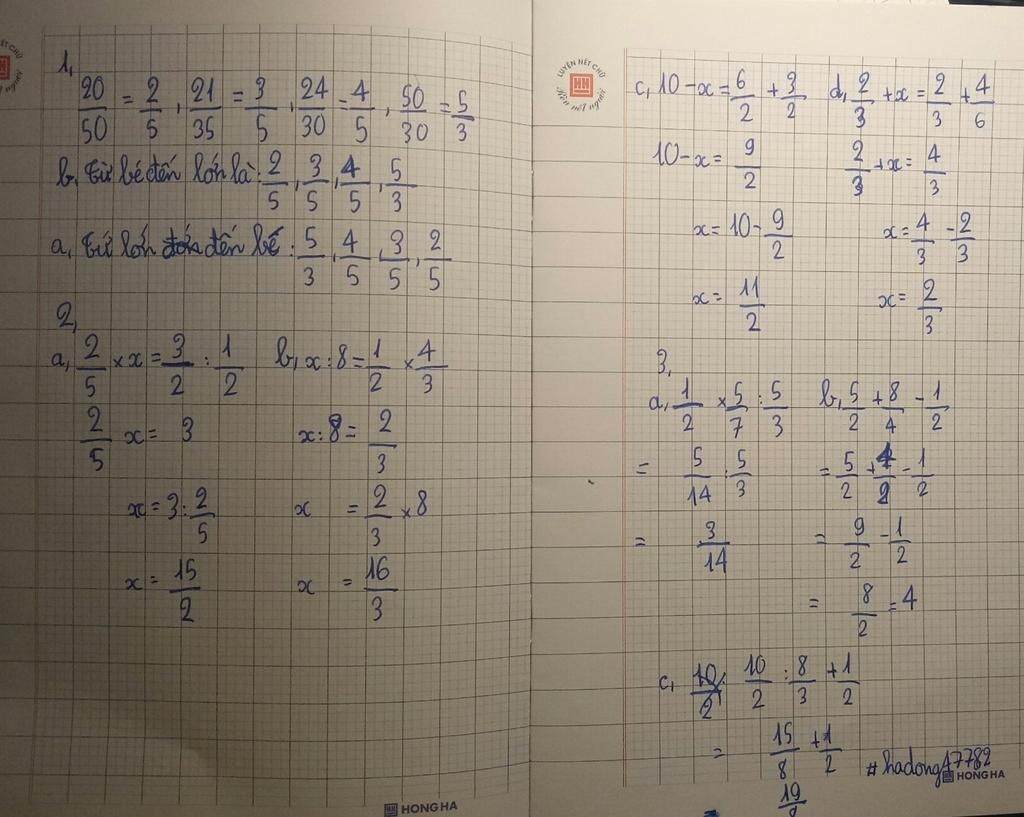 1,
20/50 = 2/5 , 21/35 = 3/5 , 24/30 = 4/5 , 50/30 = 5/3
b, từ bé đến lớn là: 2/5 , 3/5 , 4/5 , 5/3
a, từ lớn đến bé : 5/3 , 4/5 , 3/5 , 2/5
2,
a, 2/5 × x = 3/2 : 1/2
2/5 x = 3
x = 3 : 2/5
x = 15/2
b, x : 8 = 1/2 × 4/3
x : 8 = 2/3
x = 2/3 × 8
x = 16/3
HONG HA
LUYỆN NÉT CHỮ
Rèn nết người
c, 10 - x = 6/2 + 3/2
10 - x = 9/2
x = 10 - 9/2
x = 11/2
d, 2/3 + x = 2/3 + 4/6
2/3 + x = 4/3
x = 4/3 - 2/3
x = 2/3
3,
a, 1/2 × 5/7 : 5/3
= 5/14 : 5/3
= 3/14
b, 5/2 + 8/4 - 1/2
= 5/2 + 4/2 - 1/2
= 9/2 - 1/2
= 8/2 = 4
c, 10/2 : 8/3 + 1/2
= 15/8 + 1/2
= 19/8
#hadong47782
HONG HA